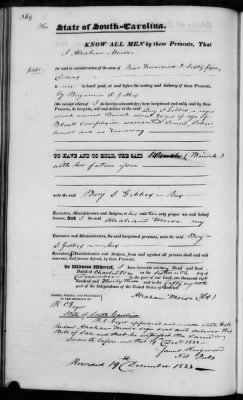 369
The State of South-Carolina.
KNOW ALL MEN by these Presents, That
I Abraham Moise
for and in consideration of the sum of Four Hundred & Sixty five
Dollars
to me in hand paid, at and before the sealing and delivery of these Presents,
by Benjamin S Gibbes
(the receipt whereof I do hereby acknowledge) have bargained and sold, and by these
Presents, do bargain, sell and deliver to the said Benj S Gibbes a negro
wench named Binah about 30 years of age of
Black complexion warranted Sound Sober
honest and no runaway
TO HAVE AND TO HOLD, THE SAID Wench (Binah)
with her future issue
unto the said Benj S Gibbes his
Executors, Administrators and Assigns, to his and their only proper use and behoof
forever. AND I the said Abraham Moise my
Executors and Administrators, the said bargained premises, unto the said Benj
S Gibbes his
Executors, Administrators and Assigns, from and against all persons shall and will
warrant, and forever defend, by these Presents.
In Witness Whereof, I have hereunto set my Hand and Seal
Dated at Charleston on the
December in the year of our Lord one thousand eight
hundred and Thirty three and in the fifty eighth
year of the Independence of the United States of America.
Abraham Moise (LS)
SIGNED, SEALED, AND DELIVERED
IN THE PRESENCE OF
State of South Carolina
appeared and made Oath that
he saw Abraham Moise sign seal and deliver the
Bill of Sale and that he witnessed the same
Sworn to before me this 19 Decr 1833
James
Recorded 19th December 1833